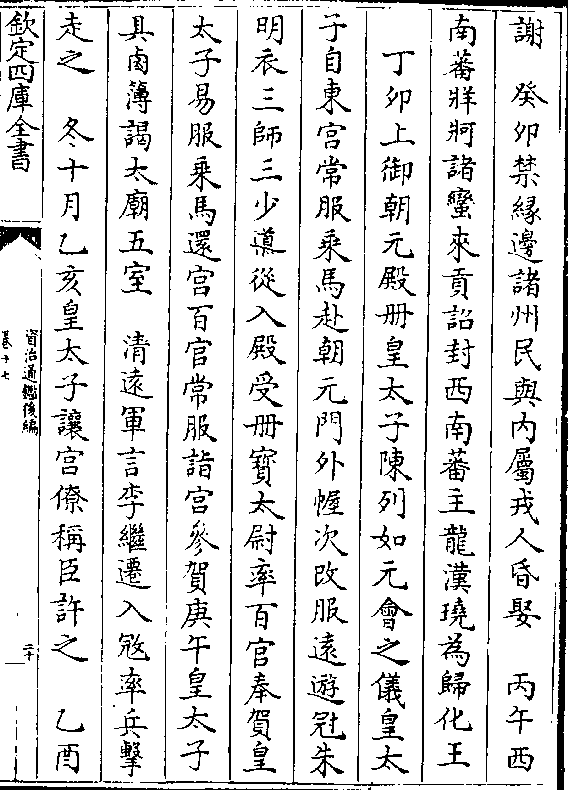 謝　癸卯禁緣邊諸州民與内屬戎人昏娶　丙午西
南蕃牂牁諸蠻來貢詔封西南蕃主龍漢璄為歸化王
丁卯上御朝元殿冊皇太子陳列如元會之儀皇太
子自東宫常服乘馬赴朝元門外幄次改服遠遊冠朱
明衣三師三少遵從入殿受冊寳太尉率百官奉賀皇
太子易服乘馬還宫百官常服詣宫參賀庚午皇太子
具鹵簿謁太廟五室　清遠軍言李繼遷入寇率兵擊
走之　冬十月乙亥皇太子讓宫僚稱臣許之　乙酉
欽定四庫全書
資治通鑑後編
卷十七
二十